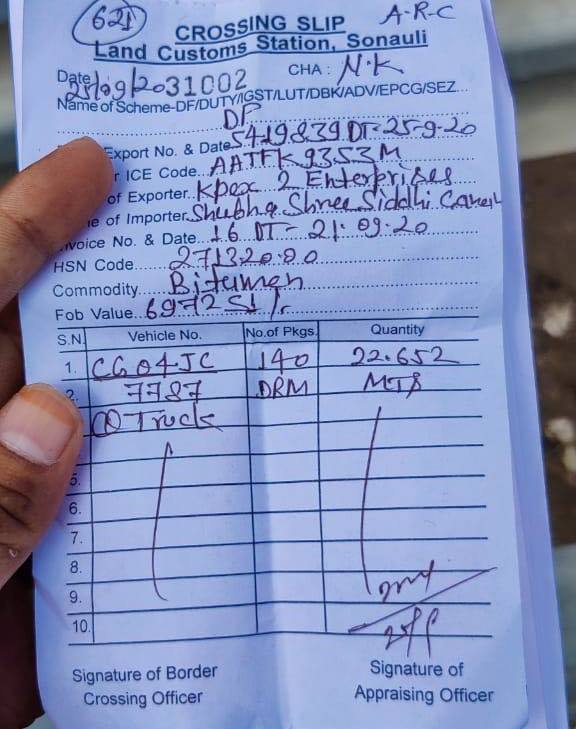 621 A-R-C
CROSSING SLIP
Land Customs Station, Sonauli
Date 25/09/2031002 CHA : N.K
Name of Scheme-DF/DUTY/IGST/LUT/DBK/ADV/EPCG/SEZ...
DP
Export No. & Date 5419839 DT-25-9-20
r ICE Code. AATFK9353M
of Exporter. Kpex 2 Enterprises
e of Importer. Shubha Shree Siddhi
nvoice No. & Date 16 DT- 21.09.20
HSN Code 27132000
Commodity Bitumen
Fob Value. 697251/-
S.N. Vehicle No. No.of Pkgs. Quantity
1. CG04JC 140 22.652
2. 7787 DRM MTS
Truck
5.
6.
7.
8.
9.
10.
25/9
Signature of Border Signature of
Crossing Officer Appraising Officer